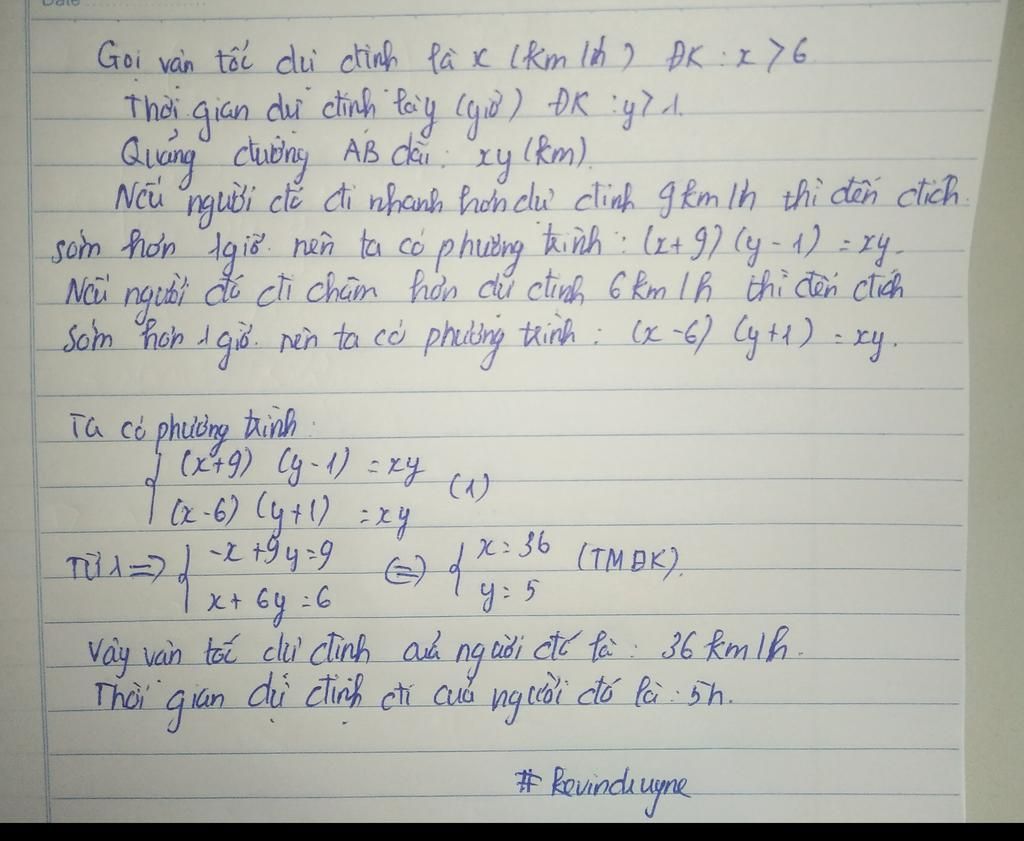 Date
Gọi vận tốc dự định là x (km/h) ĐK : x > 6
Thời gian dự định là y (giờ) ĐK : y > 1.
Quảng đường AB dài : xy (km).
Nếu người đó đi nhanh hơn dự định 9km/h thì đến đích
sớm hơn 1giờ. nên ta có phương trình : (x+9) (y-1) = xy.
Nếu người đó đi chậm hơn dự định 6km/h thì đến đích
sớm hơn 1giờ. nên ta có phương trình : (x-6) (y+1) = xy.
Ta có phương trình :
{ (x+9) (y-1) = xy
(x-6) (y+1) = xy (1)
Từ 1 => { -x + 9y = 9 <=> { x = 36 (TMĐK).
x + 6y = 6 y = 5
Vậy vận tốc dự định của người đó là : 36km/h.
Thời gian dự định đi của người đó là : 5h.